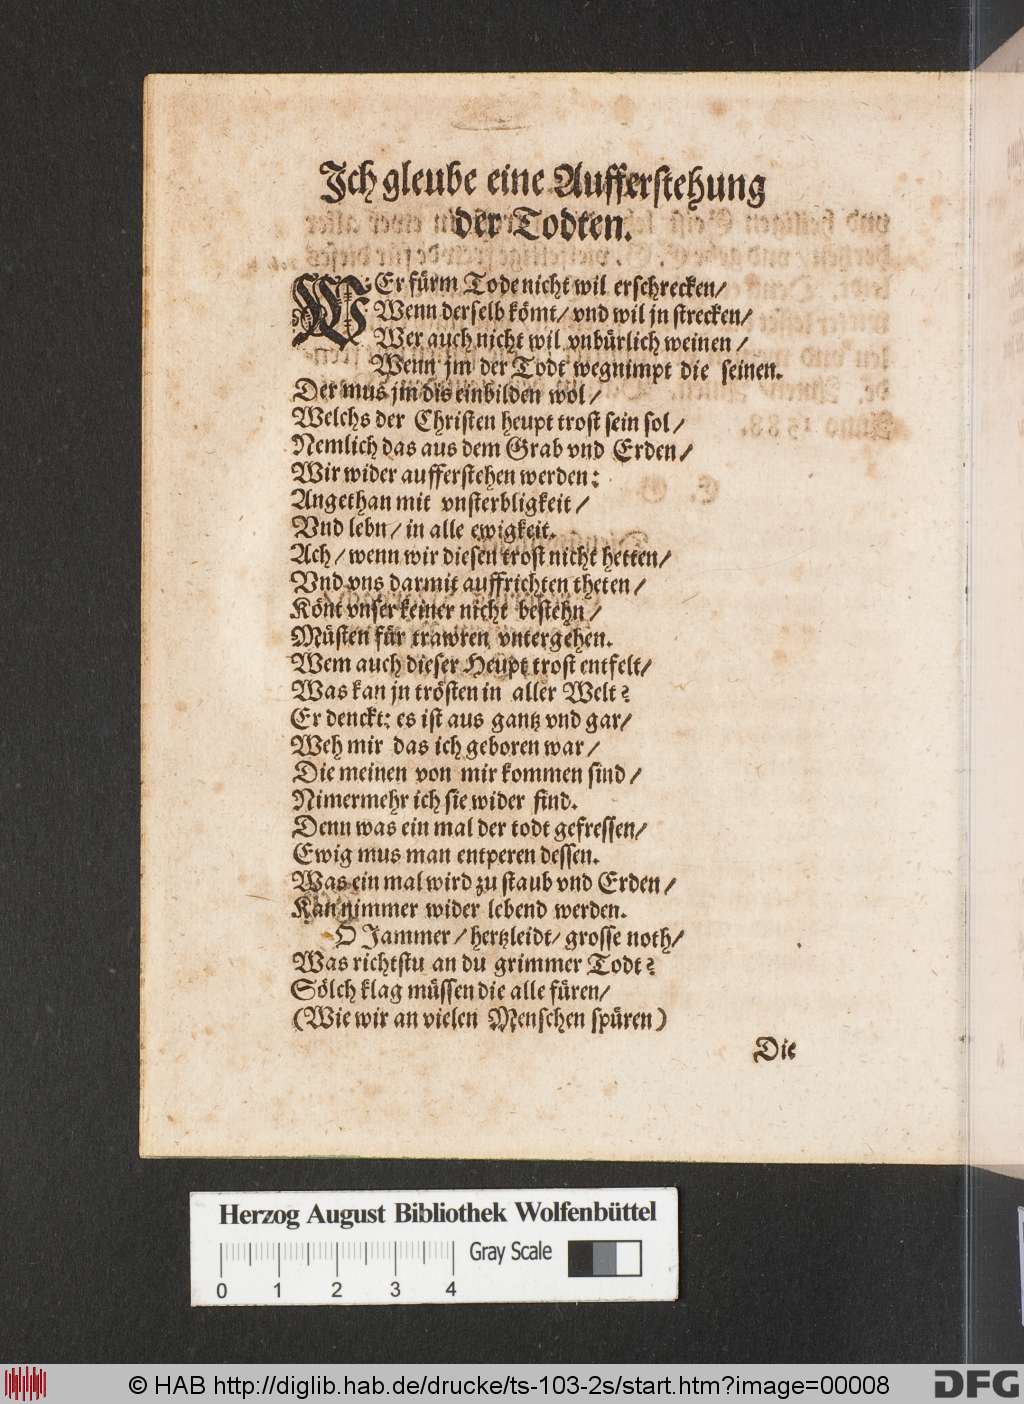 Ich gleube eine Aufferstehung
der Todten.
WEr fürm Tode nicht wil erschrecken/
Wenn derselb kömt/ vnd wil jn strecken/
Wer auch nicht wil vnbürlich weinen/
Wenn jm der Todt wegnimpt die seinen.
Der mus jm dis einbilden wol/
Welchs der Christen heupt trost sein sol/
Nemlich das aus dem Grab vnd Erden/
Wir wider aufferstehen werden:
Angethan mit vnsterbligkeit/
Vnd lebn/ in alle ewigkeit.
Ach/ wenn wir diesen trost nicht hetten/
Vnd vns darmit auffrichten theten/
Könt vnser keiner nicht bestehn/
Müsten für trawren vntergehen.
Wem auch dieser Heupt trost entfelt/
Was kan jn trösten in aller Welt?
Er denckt: es ist aus gantz vnd gar/
Weh mir das ich geboren war/
Die meinen von mir kommen sind/
Nimermehr ich sie wider find.
Denn was ein mal der todt gefressen/
Ewig mus man entperen dessen.
Was ein mal wird zu staub vnd Erden/
Kan nimmer wider lebend werden.
O Jammer/ hertzleidt/ grosse noth/
Was richtstu an du grimmer Todt?
Sölch klag müssen die alle füren/
(Wie wir an vielen Menschen spüren)
Die
Herzog August Bibliothek Wolfenbüttel
Gray Scale
0 1 2 3 4
© HAB http://diglib.hab.de/drucke/ts-103-2s/start.htm?image=00008
DFG